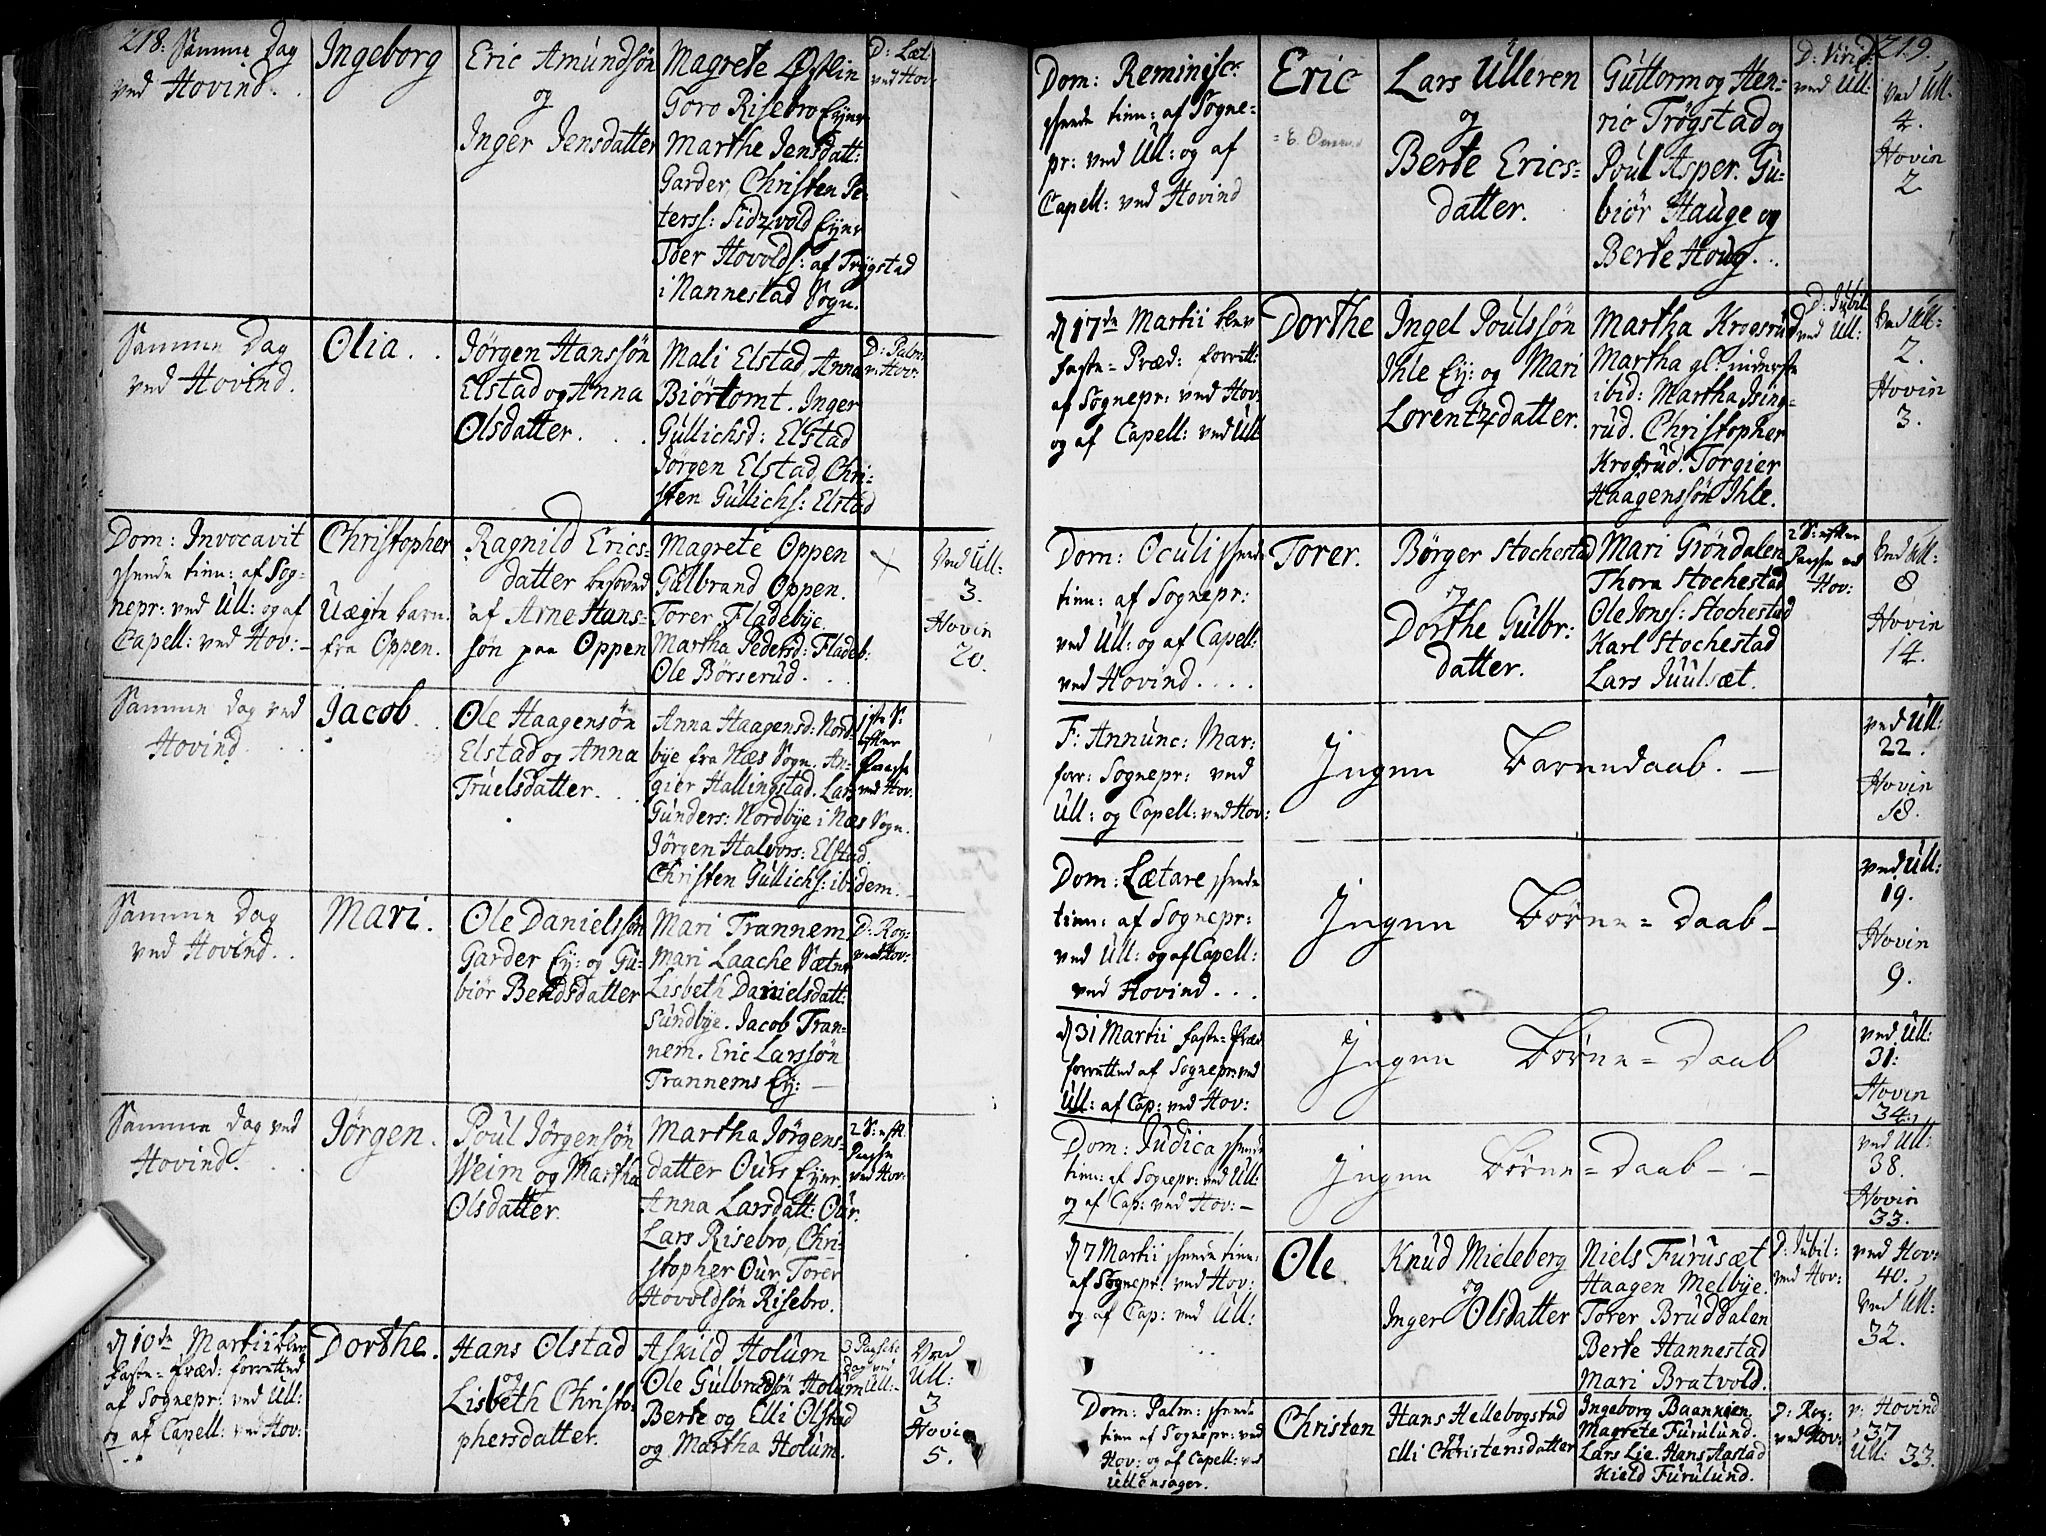 218. Samme Dag
ved Hovind.
Ingeborg
Eric Amundsøn
og
Inger Jensdatter
Magrete Østlin
Goro Risebro Eyer
Marthe Jensdatt:
Garder, Christen Pe-
terss: Sidzvold Eyer
Toer Hovolds: af Trygstad
i Nannestad Sogn.
D: Læt:
ved Hov:
Samme Dag
ved Hovind.
Olia. . .
Jørgen Hanssøn
Elstad og Anna
Olsdatter. . .
Mali Elstad, Anna
Biørtomt. Inger
Gullichsd: Elstad
Jørgen Elstad, Chri-
sten Gullichs: Elstad
D: Palm:
v: Hov:
Dom: Invocavit
tien: af Sog-
nepr: ved Ull: og af
Capell: ved Hov: -
Christopher
Uægte barn.
fra Oppen.
Ragnild Erics-
datter besoved
af Arne Hans-
søn paa Oppen
Magrete Oppen
Gulbrand Oppen.
Torer Fladebye.
Martha Pedersd: Fladeb:
Ole Børserud. . .
x
Ved Ull:
3.
Hovin
20.
Samme Dag ved
Hovind. . .
Jacob. .
Ole Haagensøn
Elstad og Anna
Truelsdatter. . .
Anna Haagensd: Nord-
bye fra Næs Sogn. An-
gier Hallingstad. Lars
Gunders: Nordbye i Næs Sogn.
Jørgen Halvors: Elstad.
Christen Gullichs: ibidem.
1ste S:
efter
Paaske
ved Hov.
Samme Dag
ved Hovind. . .
Mari.
Ole Danielssøn
Garder Ey: og Gu-
biør Bendsdatter
Mari Trannem
Mari Laache Sætne
Lisbeth Danielsdatt:
Sundbye. Jacob Tran-
nem. Eric Larssøn
Trannems Ey: -
D: Rog:
ved Hov:
Samme Dag ved
Hovind. . .
Jørgen.
Poul Jørgensøn
Weim og Martha
Olsdatter.
Martha Jørgens-
datter Ours Eyer.
Anna Larsdatt: Our.
Lars Risebro, Chri-
stopher Our, Torer
Hovoldsøn Risebro.
2 S: eft.
Paaske
ved Hov:
d 10de Martii blev
Faste-Præd: forrettet
af Sognepr: ved Ull:
og af Capell: ved Hov:
Dorthe.
Hans Olstad
og
Lisbeth Christo-
phersdatter.
Askild Holum
Ole Gulbrandsøn Holum
Berte og Elli Olstad
og Martha Holum.
3 Paaske
dag ved
Ull: -
Ved
Ull:
3
Hovin
5.
219.
Dom: Reminisc:
tien: af Sogne-
pr: ved Ull: og af
Capell: ved Hovind
Eric
Lars Ulleren
og
Berte Erics-
datter.
Guttorm og Hen-
ric Trøgstad og
Poul Asper. Gu-
biør Hauge og
Berte Houg. . .
D: Virid:
ved Ull:
Ved Ull.
4.
Hovin
2
d 17de Martii blev
Faste-Præd: forrett:
af Sognepr: ved Hov:
og af Capell: ved Ull
Dorthe
Ingel Poulssøn
Ihle Ey: og Mari
Lorentzdatter.
Martha Krogsrud
Martha gl: inderste
ibid: Martha Ising-
rud. Christopher
Krogsrud. Torgier
Haagenssøn Ihle.
D: Jubil
ved Ull:
Ved Ull:
2.
Hovin
3.
Dom: Oculi
tien: af Sognepr:
ved Ull: og af Capell:
ved Hovind. . . .
Torer.
Børger Stochestad
og
Dorthe Gulbr:
datter.
Mari Grøndalen
Thora Stochestad
Ole Jonss: Stochestad
Karl Stochestad
Lars Juulsæt.
2 S: efter
Paaske ved
Hov:
Ved Ull:
8
Hovin
14.
F: Annunc: Mar:
forr: Sognepr: ved
Ull: og Capell: ved Hov:
Ingen Barnedaab. -
ved Ull:
22.
Hovin
18.
Dom: Lætare
tien: af Sognepr:
ved Ull: og af Capell:
ved Hovind. . .
Ingen Børne-Daab -
ved Ull:
19.
Hovin
9.
d 31 Martii Faste-Præd
forrettet af Sognepr: ved
Ull: af Cap: ved Hov:
Ingen Børne-Daab
ved Ull:
31.
Hovin
34.
Dom: Judica
tien: af Sognepr: ved Ull:
og af Cap: ved Hov: -
Ingen Børne-Daab - -
ved Ull:
38.
Hovin
33.
d 7 Martii tien:
af Sognepr: ved Hov:
og af Cap: ved Ull:
Ole
Knud Mieleberg
og
Inger Olsdatter
Niels Furusæt
Haagen Melbye.
Torer Bruddalen
Berte Hannestad
Mari Bratvold.
D: Jubil:
ved Hov:
ved Hov:
40.
Ved Ull:
32.
Dom: Palm:
tien af Sognepr: ved
Hov: og af Capell: ved
Ullensager.
Christen
Hans Hellebogstad
og
Elli Christensdatter
Ingeborg Baannien
Magrete Furulund.
Lars Lie. Hans Aastad
Kield Furulund.
D: Rog:
ved Hov:
v: Hovind
37
Ull: 33.